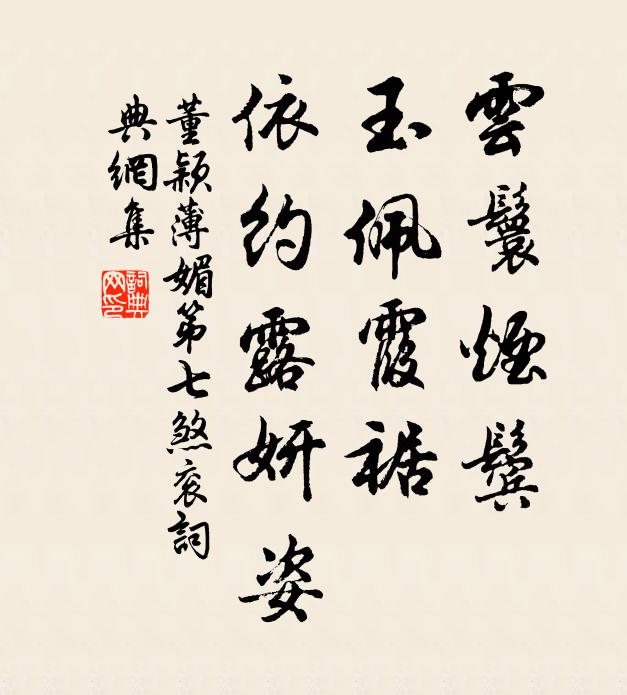 雲鬟煙鬢
玉佩霞裾
依約露妍姿
董穎薄媚第七煞衮詞
典網集
詞典
网印